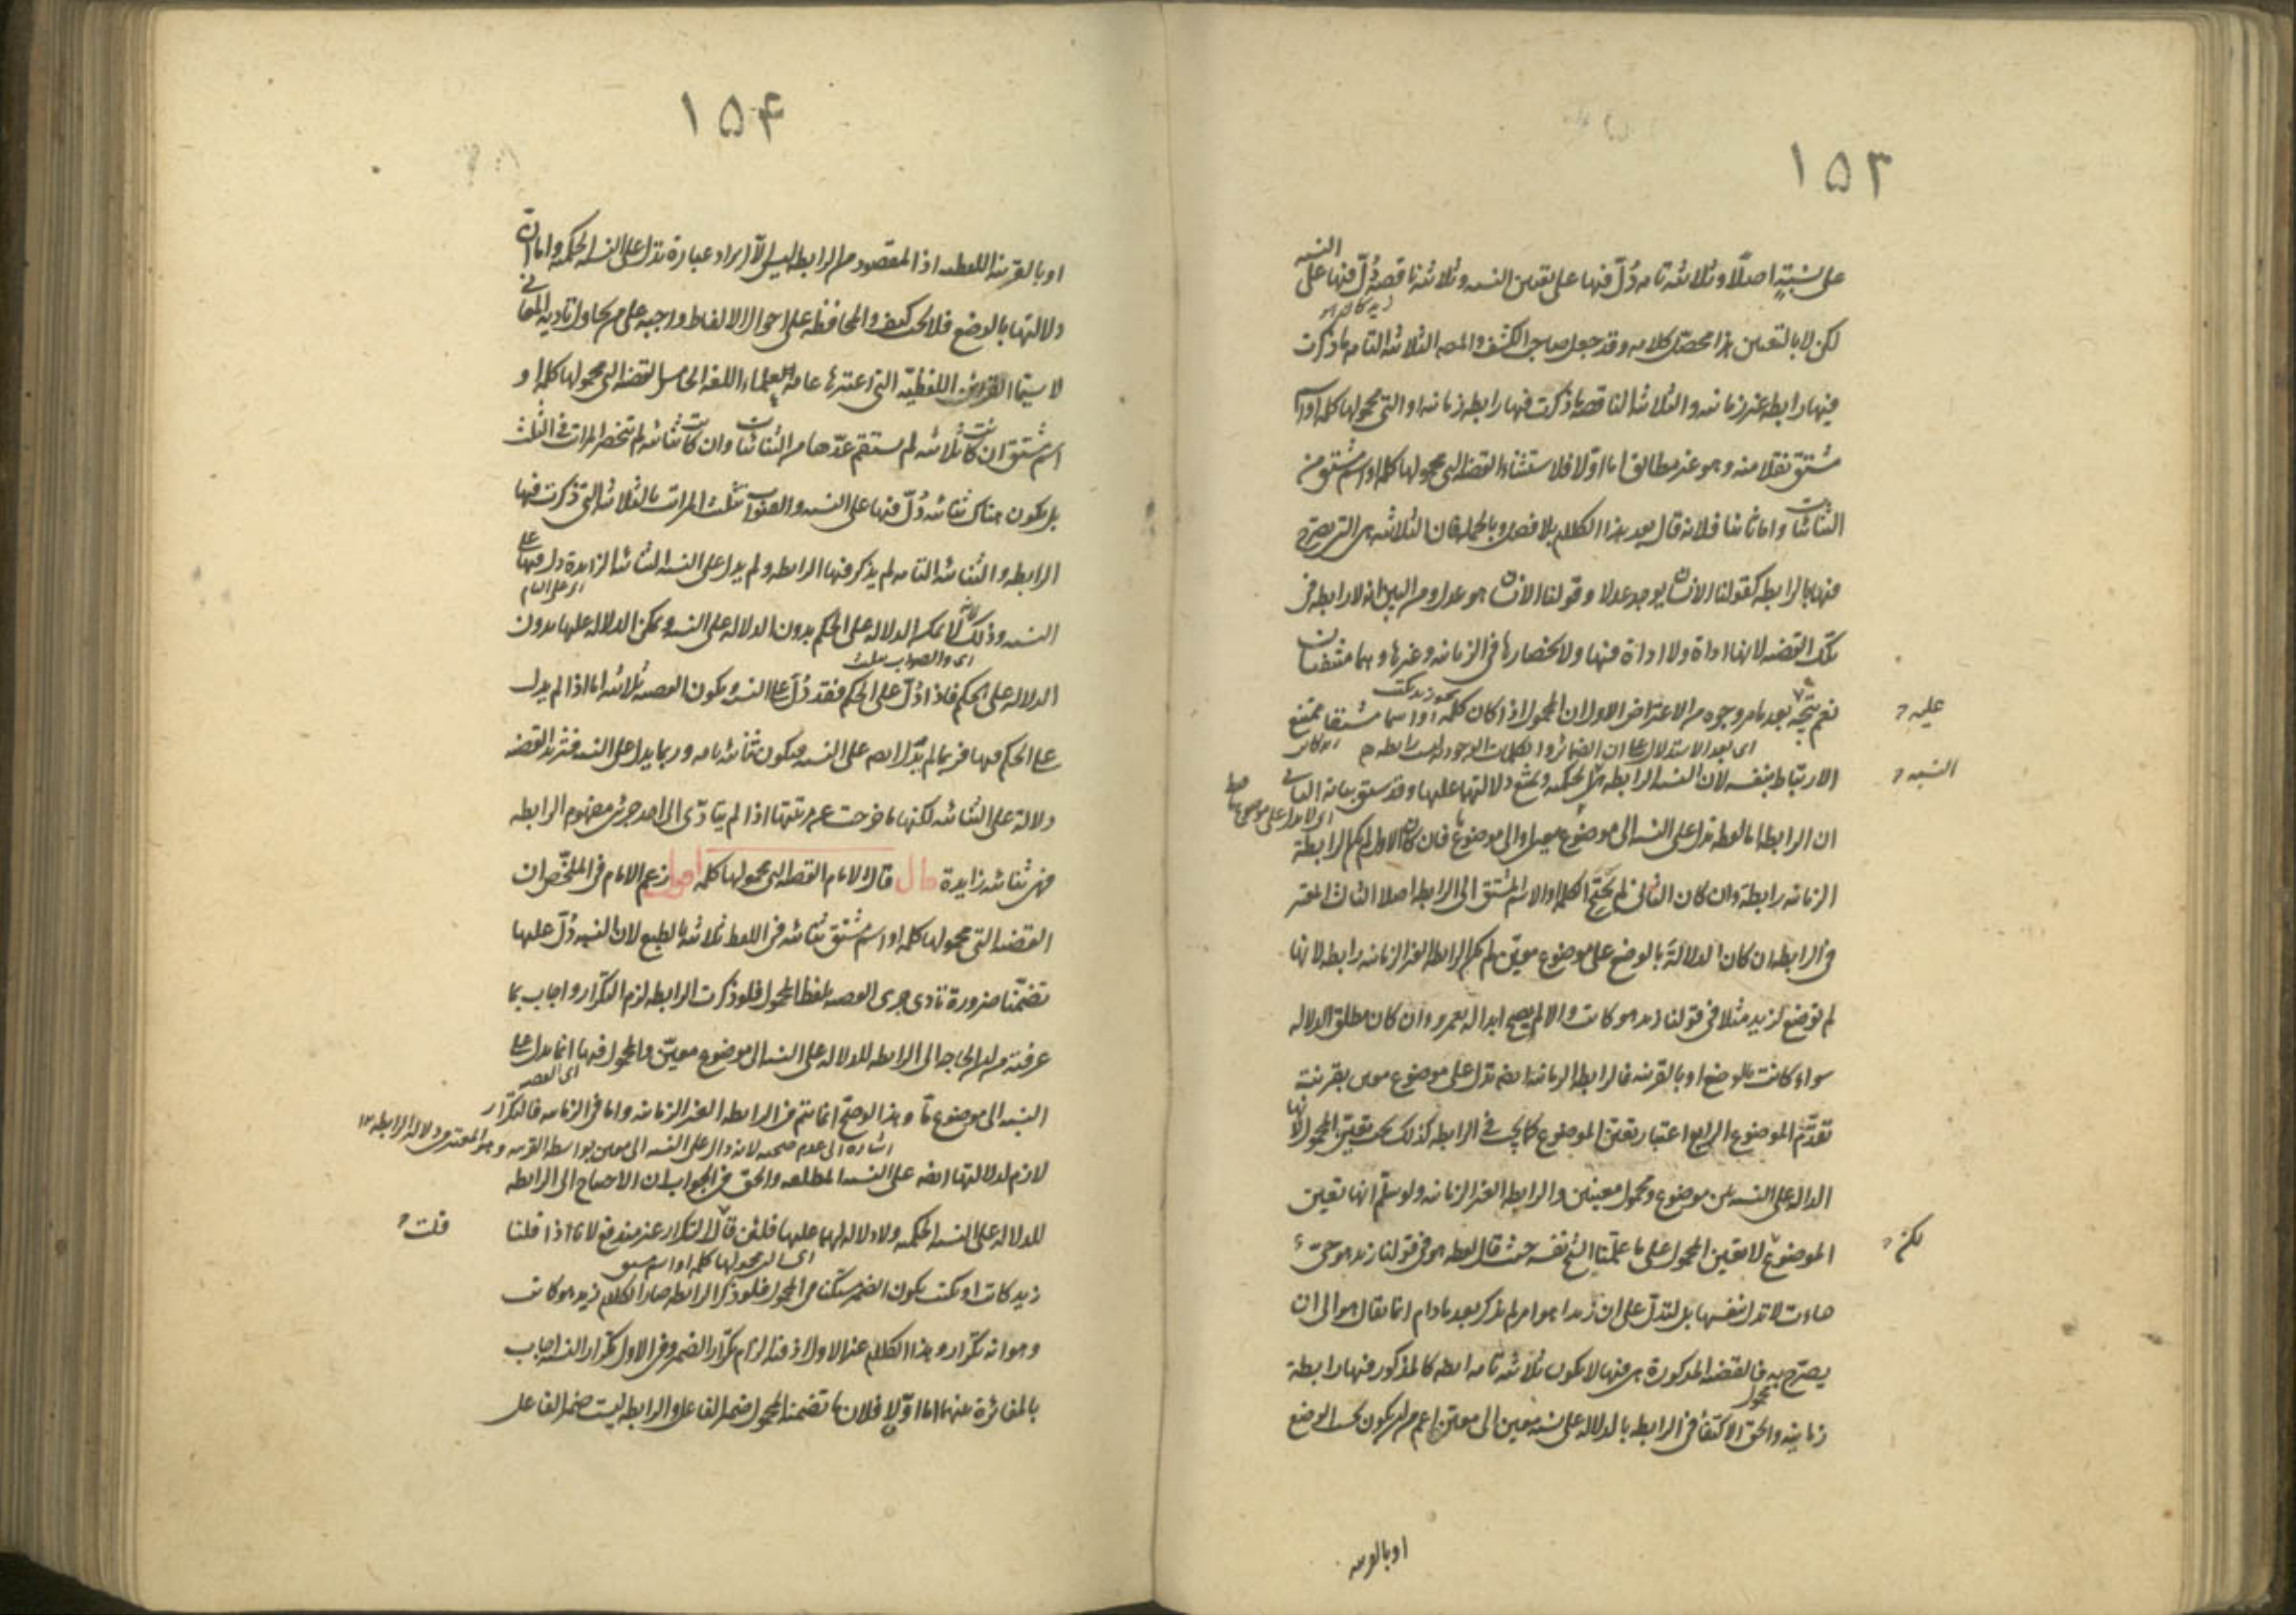 ١٥٣
على نسبة اصلا وثلاثية تامة دُلّ فيها على تعين النسبة وثلاثية ناقصة دُلّ فيها على النسبة
لكن لا بالتعين هذا محصل كلامه وقد جعل صاحب الكشف والمص الثلاثية التامة ما ذكرت
فيها رابطة غير زمانية والثلاثية الناقصة ما ذكرت فيها رابطة زمانية او التي محمولها كلمة او اسم
مشتق نقلا منه وهو غير مطابق اما اولا فلاستثناء القضية التي محمولها كلمة او اسم مشتق من
الثنائيات واما ثانيا فلانه قال بعد هذا الكلام بلا فصل وبالجملة فان الثلاثية هي التي يصرح
فيها بالرابطة كقولنا الانسان يوجد عدلا وقولنا الانسان هو عدل ومن البين انه لا رابطة في
تلك القضية لانها اداة ولا اداة فيها ولانحصارها في الزمانية وغيرها وهما منتفيان
نعم يتجه بعد ما مر وجوه من الاعتراض الاول ان المحمول اذا كان كلمة او اسما مشتقا يمتنع
عليه
الارتباط بنفسه لان النسبة الرابطة هي الحكمية ويمتنع دلالتها عليها وقد سبق بيانه الثاني
النسبة
ان الرابطة اما لفظة تدل على النسبة الى موضوع معين او الى موضوع ما فان كان الاول لم يكن الرابطة
الزمانية رابطة وان كان الثاني لم يحتج الكلمة او الاسم المشتق الى الرابطة اصلا الثالث المعتبر
في الرابطة ان كان الدلالة بالوضع على موضوع معين لم يكن الرابطة الغير الزمانية رابطة لانها
لم توضع لزيد مثلا في قولنا زيد هو كاتب والا لم يصح ابداله بعمرو وان كان مطلق الدلالة
سواء كانت بالوضع او بالقرينة فالرابطة الزمانية ايضا تدل على موضوع معين بقرينة
تقدم الموضوع الرابع اعتبار تعين الموضوع كما يجب في الرابطة كذلك يجب تعين المحمول لانها
الدالة على النسبة بين موضوع ومحمول معينين والرابطة الغير الزمانية ولو سلم انها تعين
الموضوع لا تعين المحمول على ما علمنا الشيخ نفسه حيث قال لفظة هو في قولنا زيد هو حي
لكن
جاءت لا تدل بنفسها بل لتدل على ان زيدا هو امر لم يذكر بعد ما دام انما يقال هو الى ان
يصرح به فالقضية المذكورة هي فيها لا يكون ثلاثية تامة ايضا كالمذكور فيها رابطة
زمانية والحق الاكتفاء في الرابطة بالدلالة على نسبة معين الى معين اعم من ان يكون بحسب الوضع
او بالقرينة
١٥٤
او بالقرينة اللفظية اذ المقصود من الرابطة ليس الا ايراد عبارة تدل على النسبة الحكمية واما ان
دلالتها بالوضع فلا يجب كيف والمحافظة على احوال الالفاظ واجبة على من يحاول تادية المعاني
لا سيما القرائن اللفظية التي اعتبرها عامة علماء اللغة الخامس القضية التي محمولها كلمة او
اسم مشتق ان كانت ثلاثية لم يستقم عدها من الثنائيات وان كانت ثنائية لم تنحصر المراتب في الثلث
بل يكون هناك ثنائية دُلّ فيها على النسبة والصواب تثليث المراتب بالثلاثية التي ذكرت فيها
الرابطة والثنائية التامة لم يذكر فيها الرابطة ولم يدل على النسبة الثنائية الزايدة دل فيها على
النسبة وذلك لانه لا يمكن الدلالة على الحكم بدون الدلالة على النسبة ويمكن الدلالة عليها بدون
اى والصواب تثليث
الدلالة على الحكم فاذا دُلّ على الحكم فقد دُلّ على النسبة ويكون القضية ثلاثية اما اذا لم يدل
على الحكم فيها فربما لم يدل ايضا على النسبة فيكون ثنائية تامة وربما يدل على النسبة فتزيد القضية
دلالة على الثنائية لكنها ما خرجت عن مرتبتها اذا لم يتادى الى احد جزئى مفهوم الرابطة
فهى ثنائية زايدة قال قال الامام القضية التي محمولها كلمة اقول زعم الامام في الملخص ان
القضية التي محمولها كلمة او اسم مشتق ثنائية في اللفظ ثلاثية بالطبع لان النسبة دُلّ عليها
تضمنا ضرورة تادى جزئى القضية بلفظ المحمول فلو ذكرت الرابطة لزم التكرار واجاب بما
عرفته من ان الحاجة الى الرابطة للدلالة على النسبة الى موضوع معين والمحمول فيها انما يدل على
النسبة الى موضوع ما وهذا لو صح انما يتم في الرابطة الغير الزمانية واما في الزمانية فالتكرار
اشارة الى عدم صحته لانه دال على النسبة الى معين بواسطة القرينة وهو المعتبر في دلالة الرابطة ١٢
لازم لدلالتها ايضا على النسبة المطلقة والحق في الجواب ان الاحتياج الى الرابطة
للدلالة على النسبة الحكمية ولا دلالة لهما عليها فلئن قال التكرار غير مندفع لانا اذا قلنا
قلت
اى التي محمولها كلمة او اسم مشتق
زيد كاتب او يكتب يكون الضمير مستكنا في المحمول فلو ذكر الرابطة صار الكلام زيد هو كاتب
وهو انه تكرار وهذا الكلام غير الاول اذ فيه الزام تكرار الضمير وفي الاول تكرار النسبة اجاب
بالمغايرة بينهما اما اولا فلان ما تضمنه المحمول ضمير الفاعل والرابطة ليست ضمير الفاعل